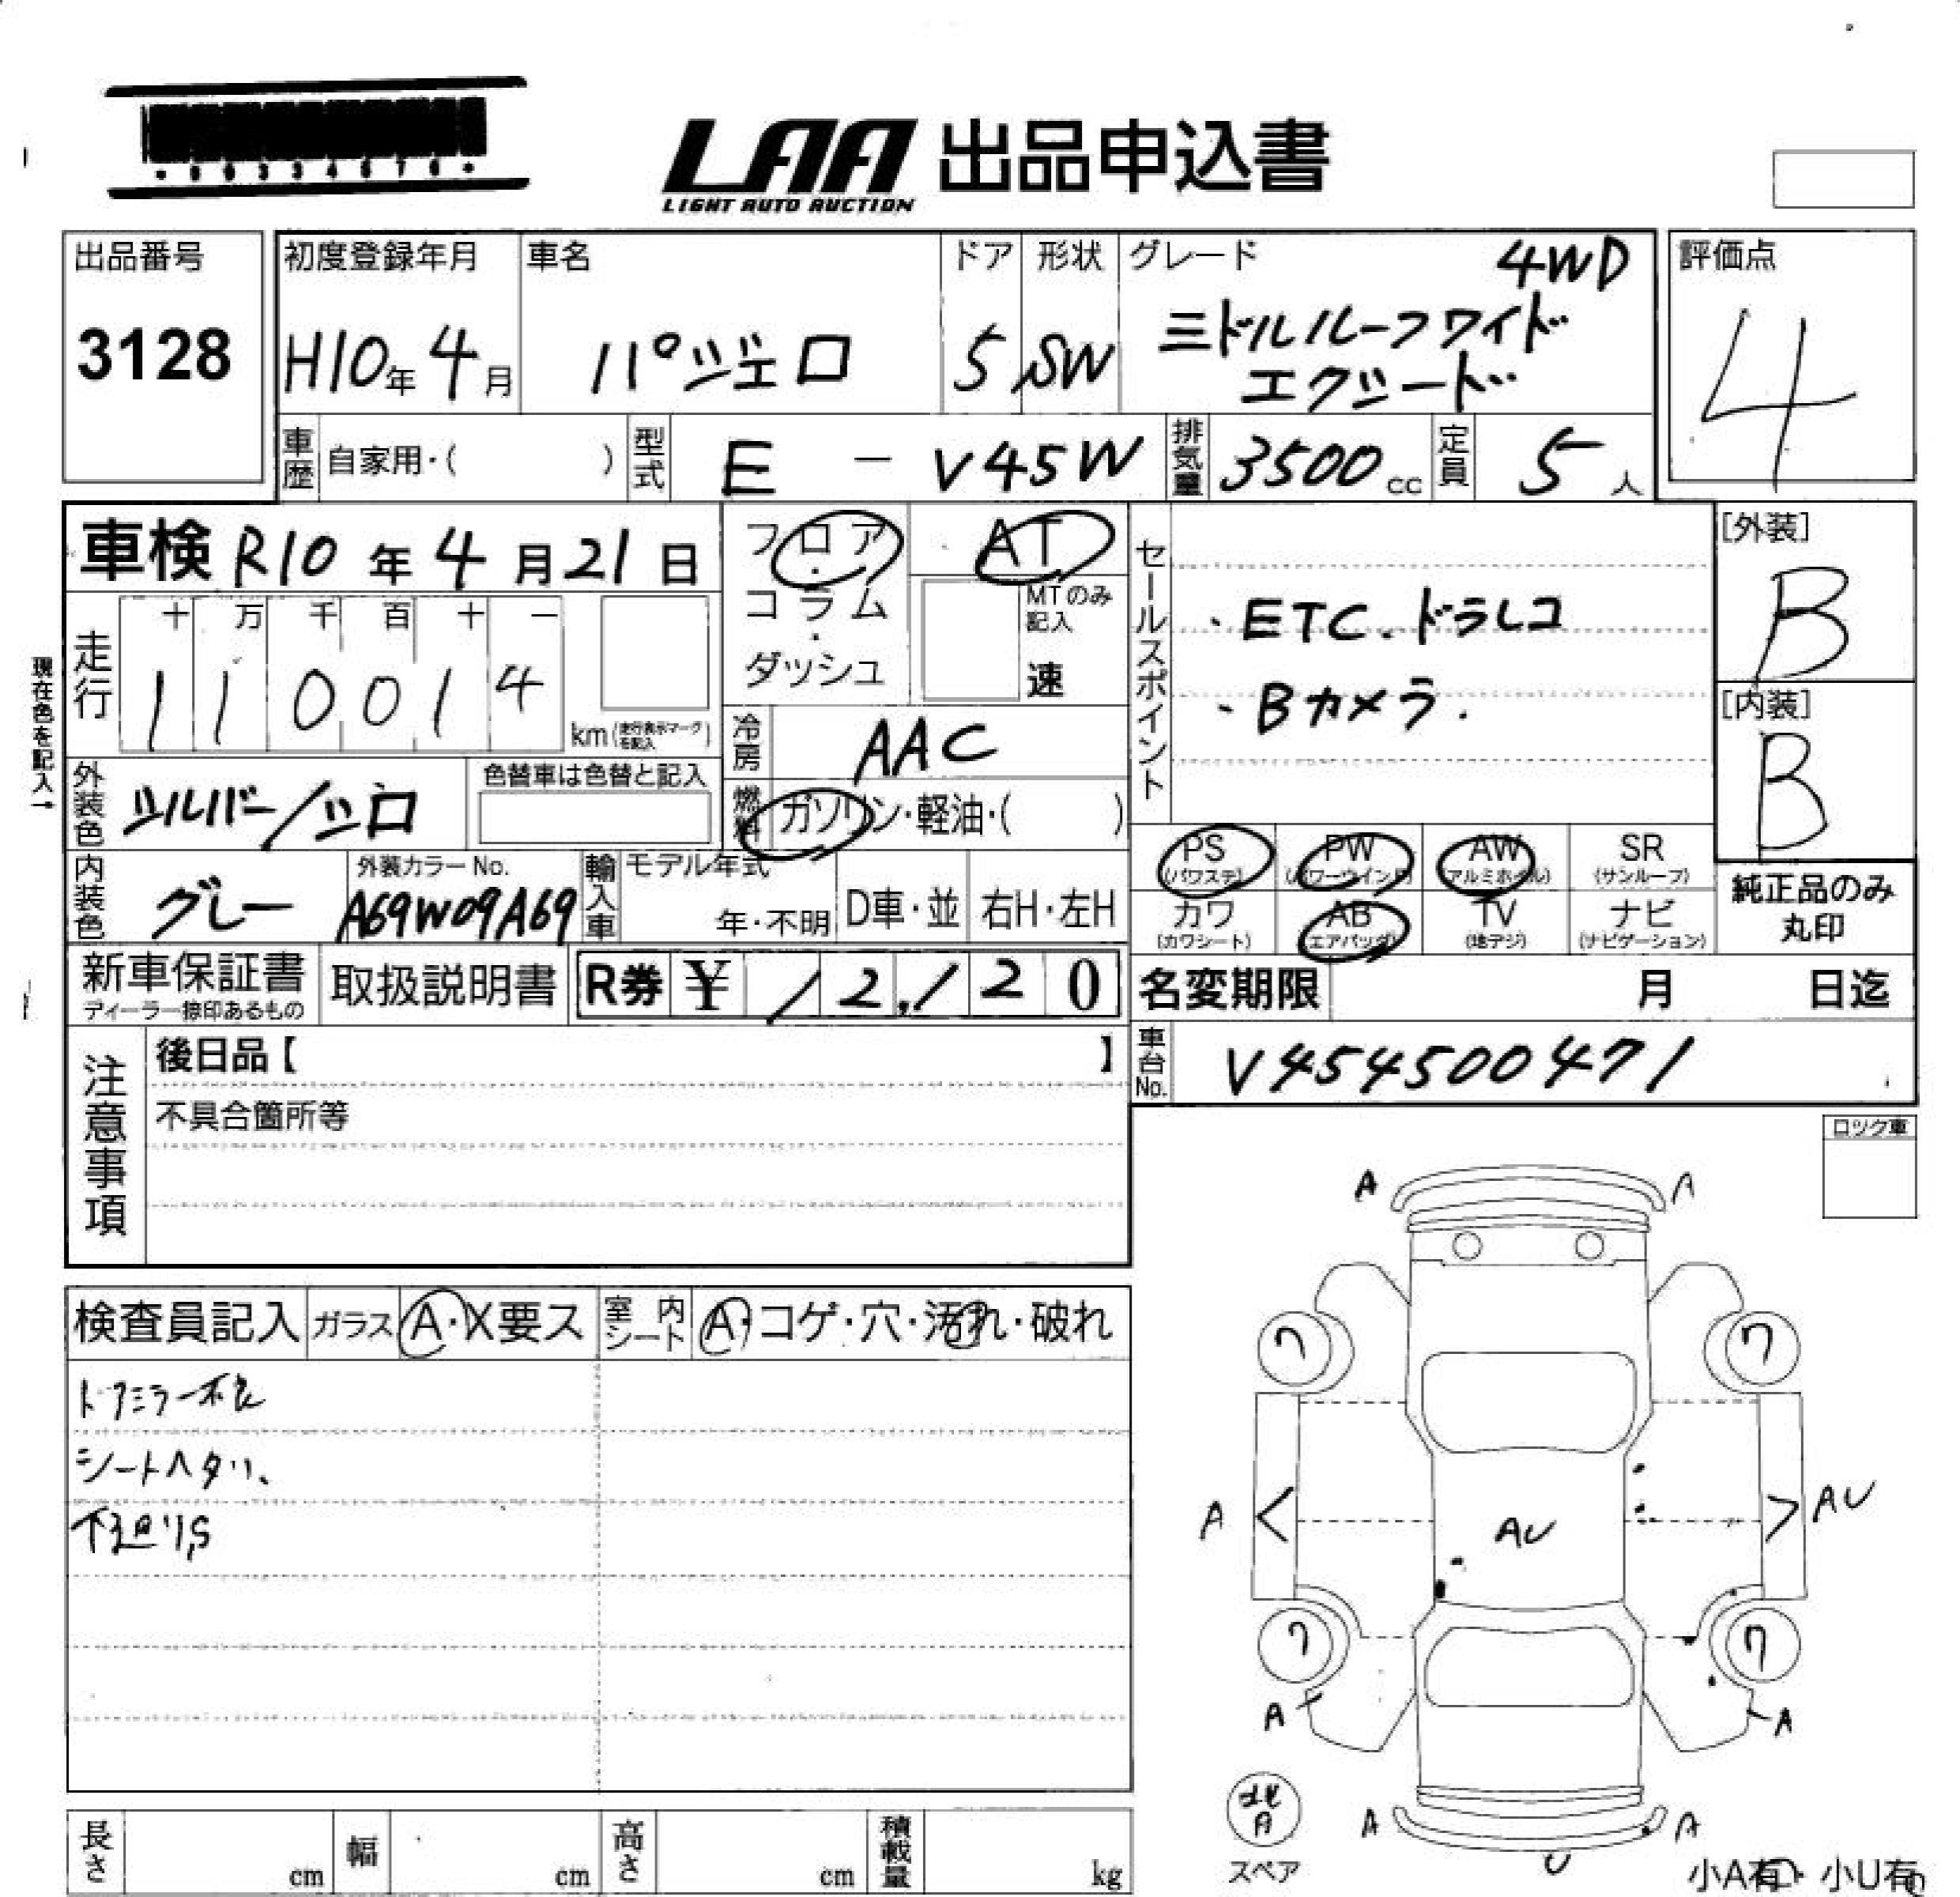 LAA 出品申込書
LIGHT AUTO AUCTION
出品番号
3128
初度登録年月
H10年4月
車名
パジェロ
ドア
5
形状
SW
グレード
4WD
ミドルルーフワイド
エクシード
評価点
4
車歴 自家用・( )
型式 E - V45W
排気量 3500cc
定員 5人
車検 R10年4月21日
フロア・
コラム・
ダッシュ
AT
MTのみ記入
速
セールスポイント
・ETC.ドラレコ
・Bカメラ.
[外装]
B
[内装]
B
現在色を記入→
走行
十 万 千 百 十 一
1 1 0 0 1 4
km(走行表示マークを記入)
冷房 AAC
燃料 ガソリン・軽油・( )
外装色 シルバー/シロ
色替車は色替と記入
内装色 グレー
外装カラーNo.
A69W09A69
輸入車
モデル年式
年・不明
D車・並
右H・左H
PS (パワステ)
PW (パワーウインド)
AW (アルミホイル)
SR (サンルーフ)
カワ (カワシート)
AB (エアバッグ)
TV (地デジ)
ナビ (ナビゲーション)
純正品のみ
丸印
新車保証書
ディーラー捺印あるもの
取扱説明書
R券 ¥ 12,120
名変期限 月 日迄
注意事項
後日品【 】
不具合箇所等
車台No. V454500471
ロック車
検査員記入
ガラス A・X要ス
室内シート A・コゲ・穴・汚れ・破れ
ドアミラー不良
シートヘタリ、
下廻りS
A A
ワ ワ
A < AU > AU
ワ ワ
A A
A
スペア
A A
U
小A有・小U有
長さ cm
幅 cm
高さ cm
積載量 kg